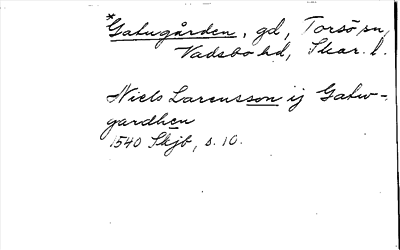 *Gatugården, gd, Torsö sn,
Vadsbo hd, Skar. l.
Niels Larensson ij Gatw-
gardhen
1540 Skjb, s. 10.